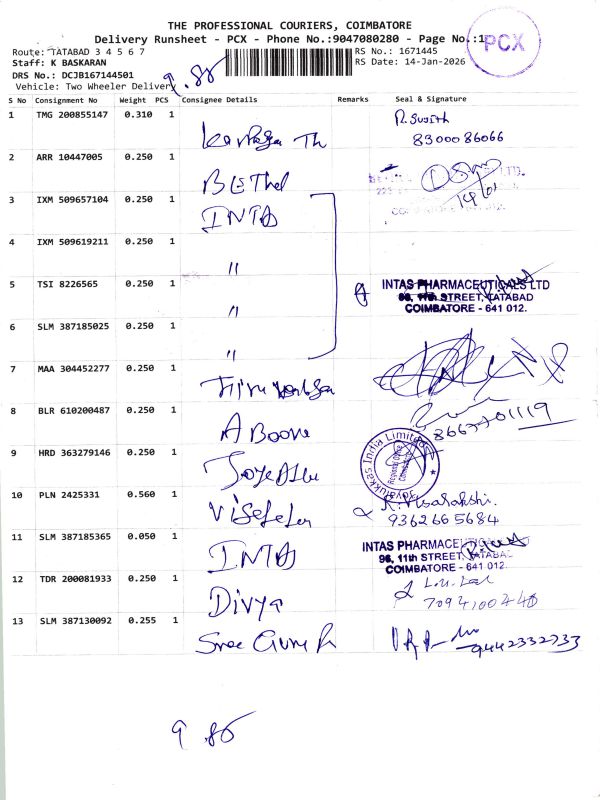 THE PROFESSIONAL COURIERS, COIMBATORE
Delivery Runsheet - PCX - Phone No.:9047080280 - Page No.:1
PCX
Route: TATABAD 3 4 5 6 7
RS No.: 1671445
Staff: K BASKARAN
RS Date: 14-Jan-2026
DRS No.: DCJB167144501
Vehicle: Two Wheeler Delivery
9.85
S No Consignment No Weight PCS Consignee Details Remarks Seal & Signature
1 TMG 200855147 0.310 1
R. Sujith
8300086066
2 ARR 10447005 0.250 1 BEThel
14/01
3 IXM 509657104 0.250 1 INTA
4 IXM 509619211 0.250 1 "
5 TSI 8226565 0.250 1 "
INTAS PHARMACEUTICALS LTD
96, 11th STREET, TATABAD
COIMBATORE - 641 012.
6 SLM 387185025 0.250 1 "
7 MAA 304452277 0.250 1
8 BLR 610200487 0.250 1 A Boove
9 HRD 363279146 0.250 1
Joyalukkas India Limited
Regional Office
Coimbatore
10 PLN 2425331 0.560 1
R. Visalakshi.
9362665684
11 SLM 387185365 0.050 1 INTA
INTAS PHARMACEUTICALS LTD
96, 11th STREET, TATABAD
COIMBATORE - 641 012.
12 TDR 200081933 0.250 1 Divya
7094100440
13 SLM 387130092 0.255 1 Sree Guru R
9442332733
9.85